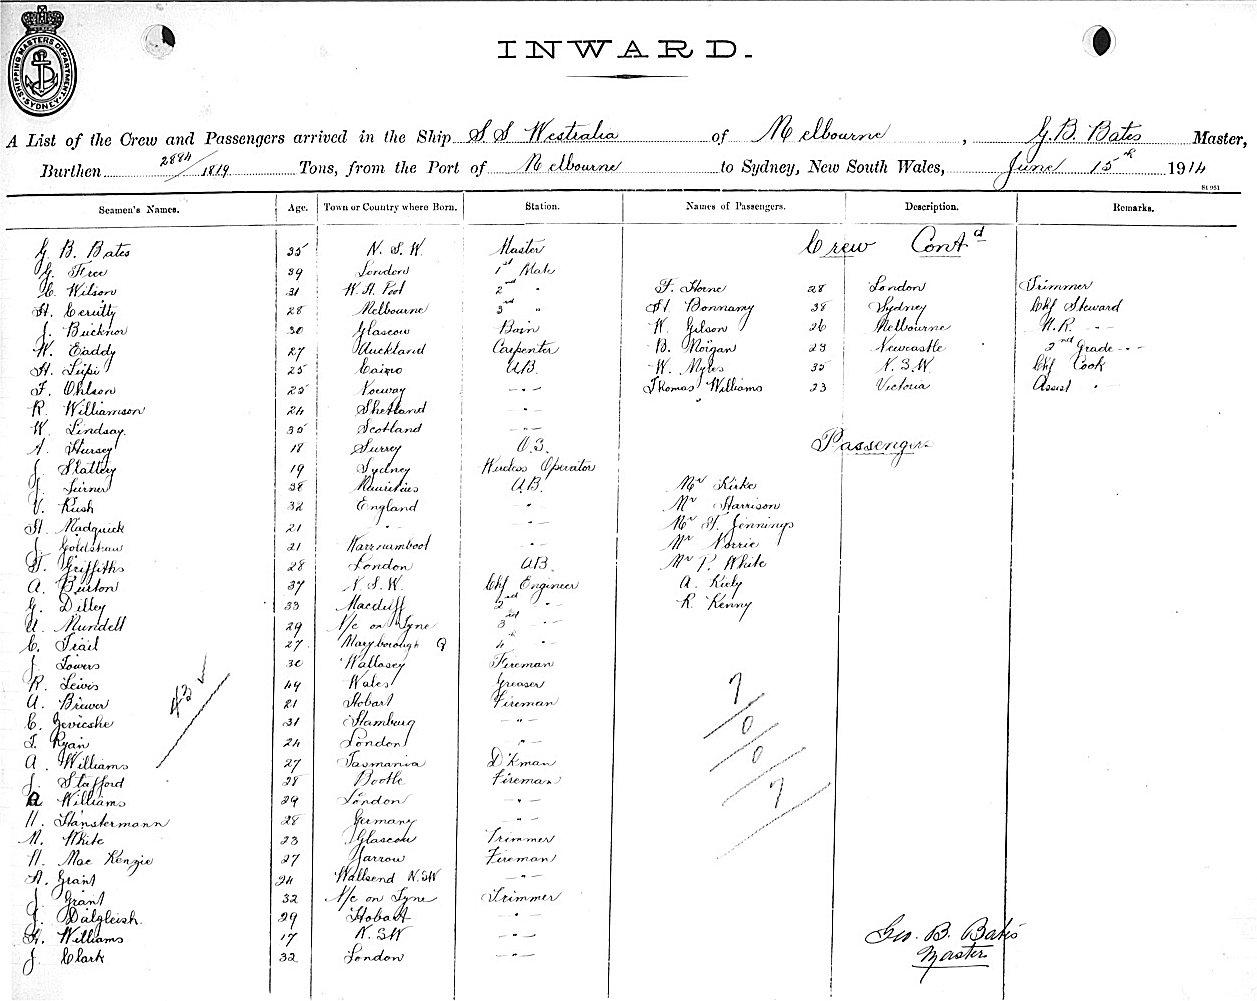 SHIPPING MASTERS DEPARTMENT SYDNEY
INWARD.
A List of the Crew and Passengers arrived in the Ship S.S Westralia of Melbourne, G.B. Bates Master,
Burthen 2884/1819 Tons, from the Port of Melbourne to Sydney, New South Wales, June 15th 1914
Seamen's Names. Age. Town or Country where Born. Station. Names of Passengers. Description. Remarks.
G. B. Bates 35 N.S.W. Master
Crew Contd
G. Free 39 London 1st Mate
C. Wilson 31 W.H. Pool 2nd "
F. Horne 28 London Trimmer
H. Cerutty 28 Melbourne 3rd "
H Bonnamy 38 Sydney Chf Steward
J. Bucknor 30 Glascow Bosn
W. Gilson 26 Melbourne
W. Eaddy 27 Auckland Carpenter
B. Morgan 23 Newcastle 2nd Grade - " -
H. Lupi 25 Cairo A.B.
W. Myles 35 N.S.W. Chf Cook
F. Ohlson 25 Norway - " -
Thomas Williams 23 Victoria Assist "
R. Williamson 24 Shetland - " -
W. Lindsay. 35 Scotland - " -
A. Hursey 18 Surrey O.S.
Passengers
J. Slattery 19 Sydney Wireless Operator
J. Turner 38 Mauritius A.B.
Mr Kirke
V. Rush 32 England - " -
Mr Harrison
H. Madquick 21 " - " -
Mr H. Jennings
J. Goldstraw 21 Warrnambool - " -
Mr Norrie
D. Griffiths 28 London A.B.
Mr P. White
A. Burton 37 N.S.W. Chf Engineer
A. Kiely
G. Dilley 33 Macduff 2nd "
R. Kenny
A. Mundell 29 N/c on Tyne 3rd "
C. Trail 27 Maryborough Q 4th "
J. Towers 30 Wallasey Fireman
R. Lewis 49 Wales Greaser
43 ✓
7
A. Brewer 21 Hobart Fireman
C. Gevieshe 31 Hamburg - " -
0
T. Ryan 24 London - " -
0
A. Williams 27 Tasmania D'kman
J. Stafford 28 Bootle Fireman
7
A Williams 29 London - " -
H. Hanstermann 28 Germany - " -
M. White 23 Glascow Trimmer
H. Mac Kenzie 27 Jarrow Fireman
A. Grant 24 Wallsend N.S.W - " -
J. Grant 32 N/c on Tyne Trimmer
J. Dalgleish. 29 Hobart - " -
G. Williams 17 N.S.W - " -
Geo. B. Bates
J. Clark 32 London - " -
Master